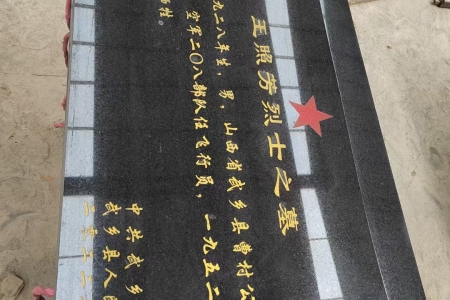 王照芳烈士之墓
九二八年生，男，山西省武乡县曹村公
空军二〇八部队任飞行员，一九五二
牺牲。
中共武乡
武乡县人民
二零二二